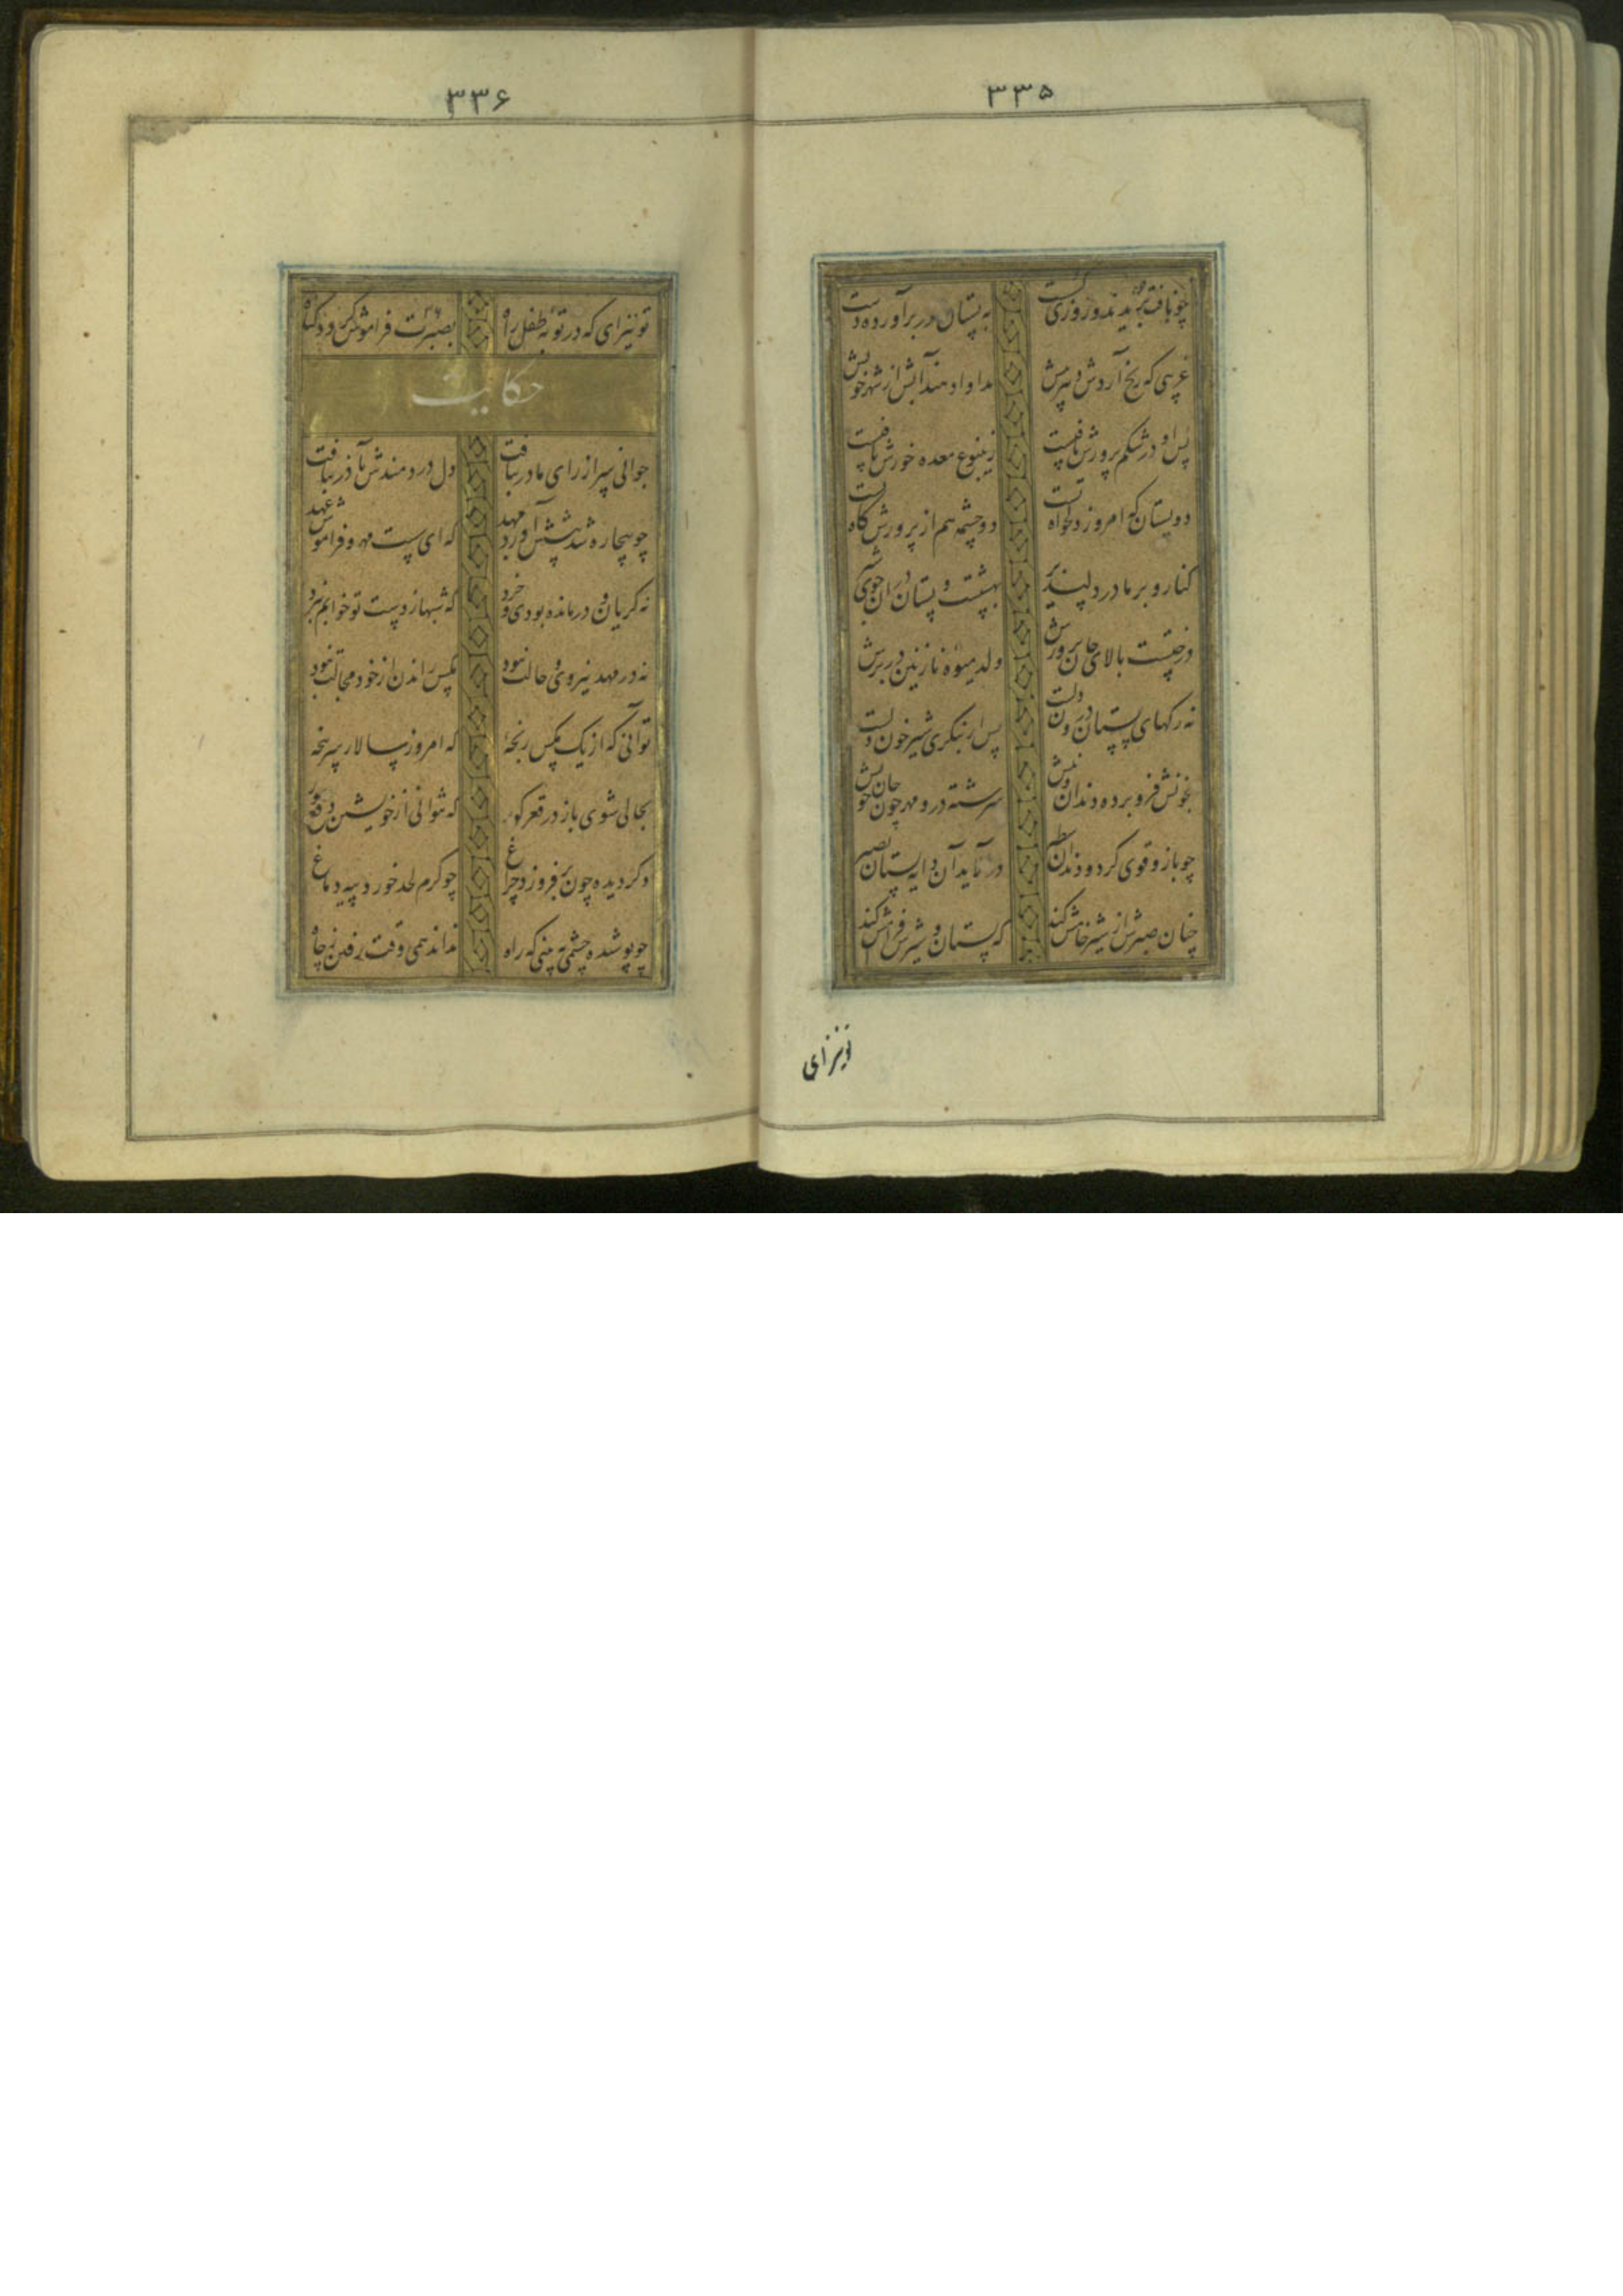 ۳۳۵
چو نافت بریدند و روزی گسست به پستان در برآورده دست
غریبی که رنج آردش دهر پیش مداوا دهند آبش از شهر خویش
پس او در شکم پرورش یافتست ز ینبوع معده خورش یافتست
دو پستان که امروز دلخواه تست دو چشمه هم از پرورش گاه تست
کنار و بر مادر دلپذیر بهشتست و پستان در آن جوی شیر
درختیست بالای جان پرورش ولد میوه نازنین در برش
نه رگهای پستان درون دلست پس ار بنگری شیر خون دلست
بخونش فرو برده دندان چو نیش سرشته درو مهر چون جان خویش
چو بازو قوی کرد و دندان
چنان صبرش از شیر خامش کند که پستان و شیرش فرامش کند
تو نیز ای
۳۳۶
تو نیز ای که در توبه طفل راه بصبرت فراموش گردد گناه
حکایت
جوانی سر از رای مادر بتافت دل دردمندش بآذر بتافت
چو بیچاره شد پیشش آورد مهد که ای سست مهر و فراموش عهد
نه گریان و درمانده بودی و خرد که شبها ز دست تو خوابم نبرد
نه در مهد نیروی و حالت نبود مگس راندن از خود مجالت نبود
تو آنی که از یک مگس رنجهٔ که امروز سالار سرپنجهٔ
بحالی شوی باز در قعر گور که نتوانی از خویشتن دفع مور
دگر دیده چون بر فروزد چراغ چو کرم لحد خورد پیه دماغ
چو پوشیده چشمی نبینی که راه نداند همی وقت رفتن ز چاه